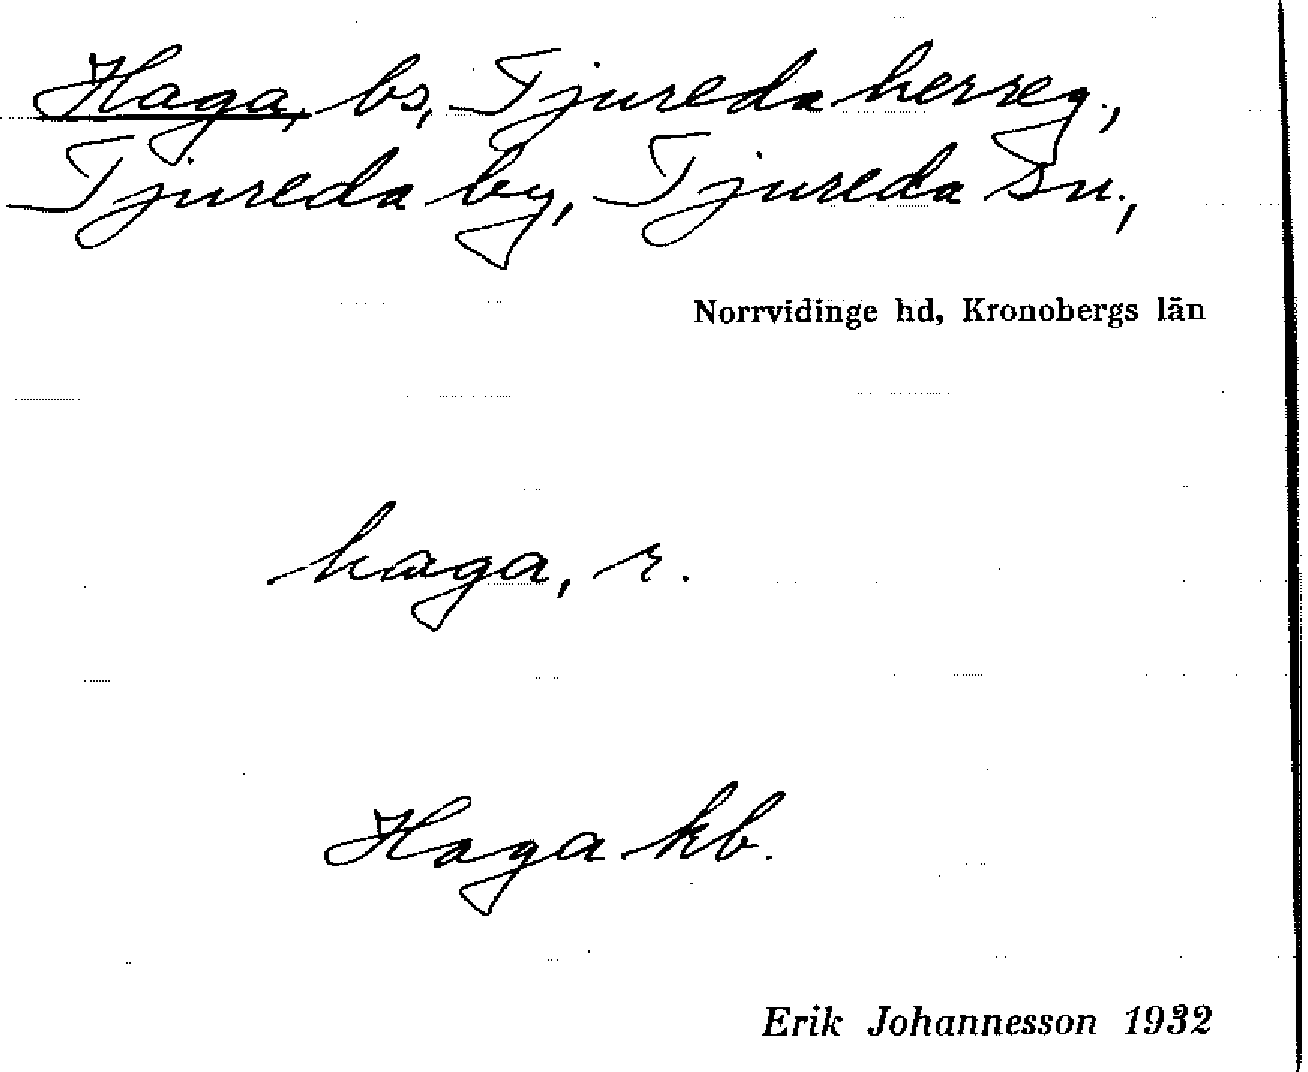 Haga, bs, Tjureda herreg.,
Tjureda by, Tjureda sn.,
Norrvidinge hd, Kronobergs län
haga, r.
Haga kb.
Erik Johannesson 1932